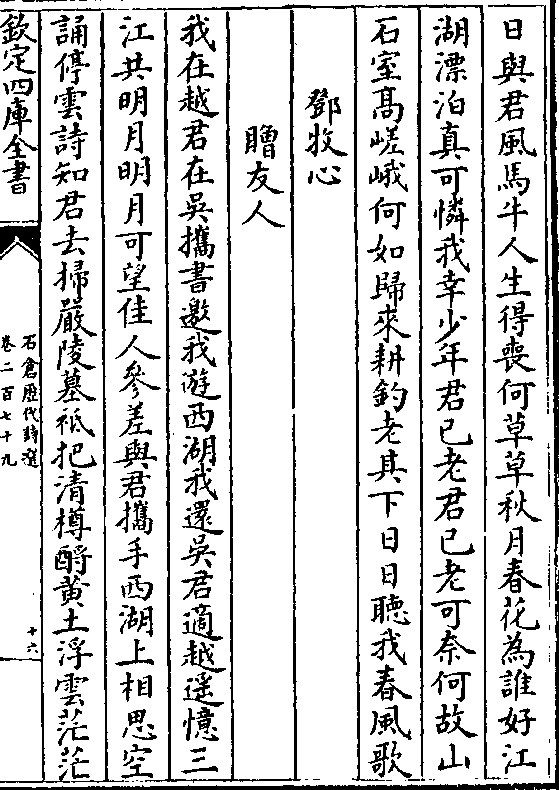 日與君風馬牛人生得喪何草草秋月春花為誰好江
湖漂泊真可憐我幸少年君已老君已老可奈何故山
石室高嵯峨何如歸來耕釣老其下日日聽我春風歌
鄧牧心
贈友人
我在越君在吳攜書邀我遊西湖我還吳君適越遥憶三
江共明月明月可望佳人參差與君攜手西湖上相思空
誦停雲詩知君去掃嚴陵墓袛把清樽酹黄土浮雲茫茫
欽定四庫全書
石倉歷代詩選
卷二百七十九
十六